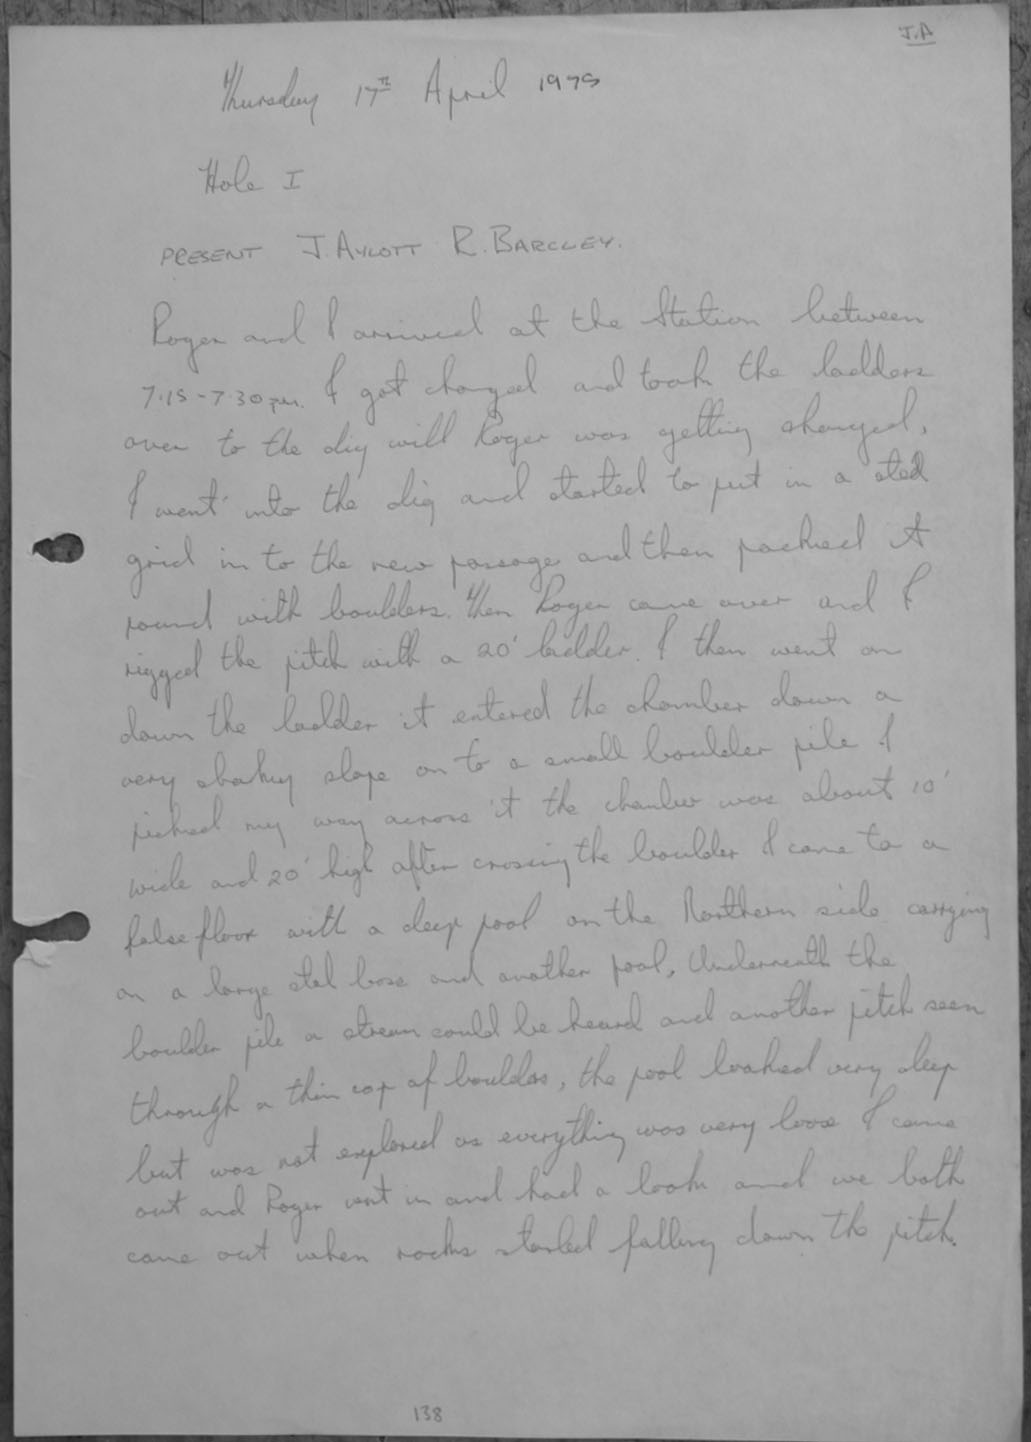 J.A
Thursday 17th April 1975
Hole I
PRESENT J. AYLOTT R. BARCLEY.
Roger and I arrived at the Station between
7.15 - 7.30 pm. I got changed and took the ladders
over to the dig will Roger was getting changed,
I went into the dig and started to put in a steel
grid in to the new passage and then packed it
round with boulders. Then Roger came over and I
rigged the pitch with a 20' ladder. I then went on
down the ladder it entered the chamber down a
very shakey slope on to a small boulder pile I
picked my way across it the chamber was about 10'
wide and 20' high after crossing the boulder I came to a
false floor with a deep pool on the Northern side carrying
on a large stal bose and another pool, Underneath the
boulder pile a stream could be heard and another pitch seen
through a thin cap of boulders, the pool looked very deep
but was not explored as everything was very loose I came
out and Roger went in and had a look and we both
came out when rocks started falling down the pitch.
138